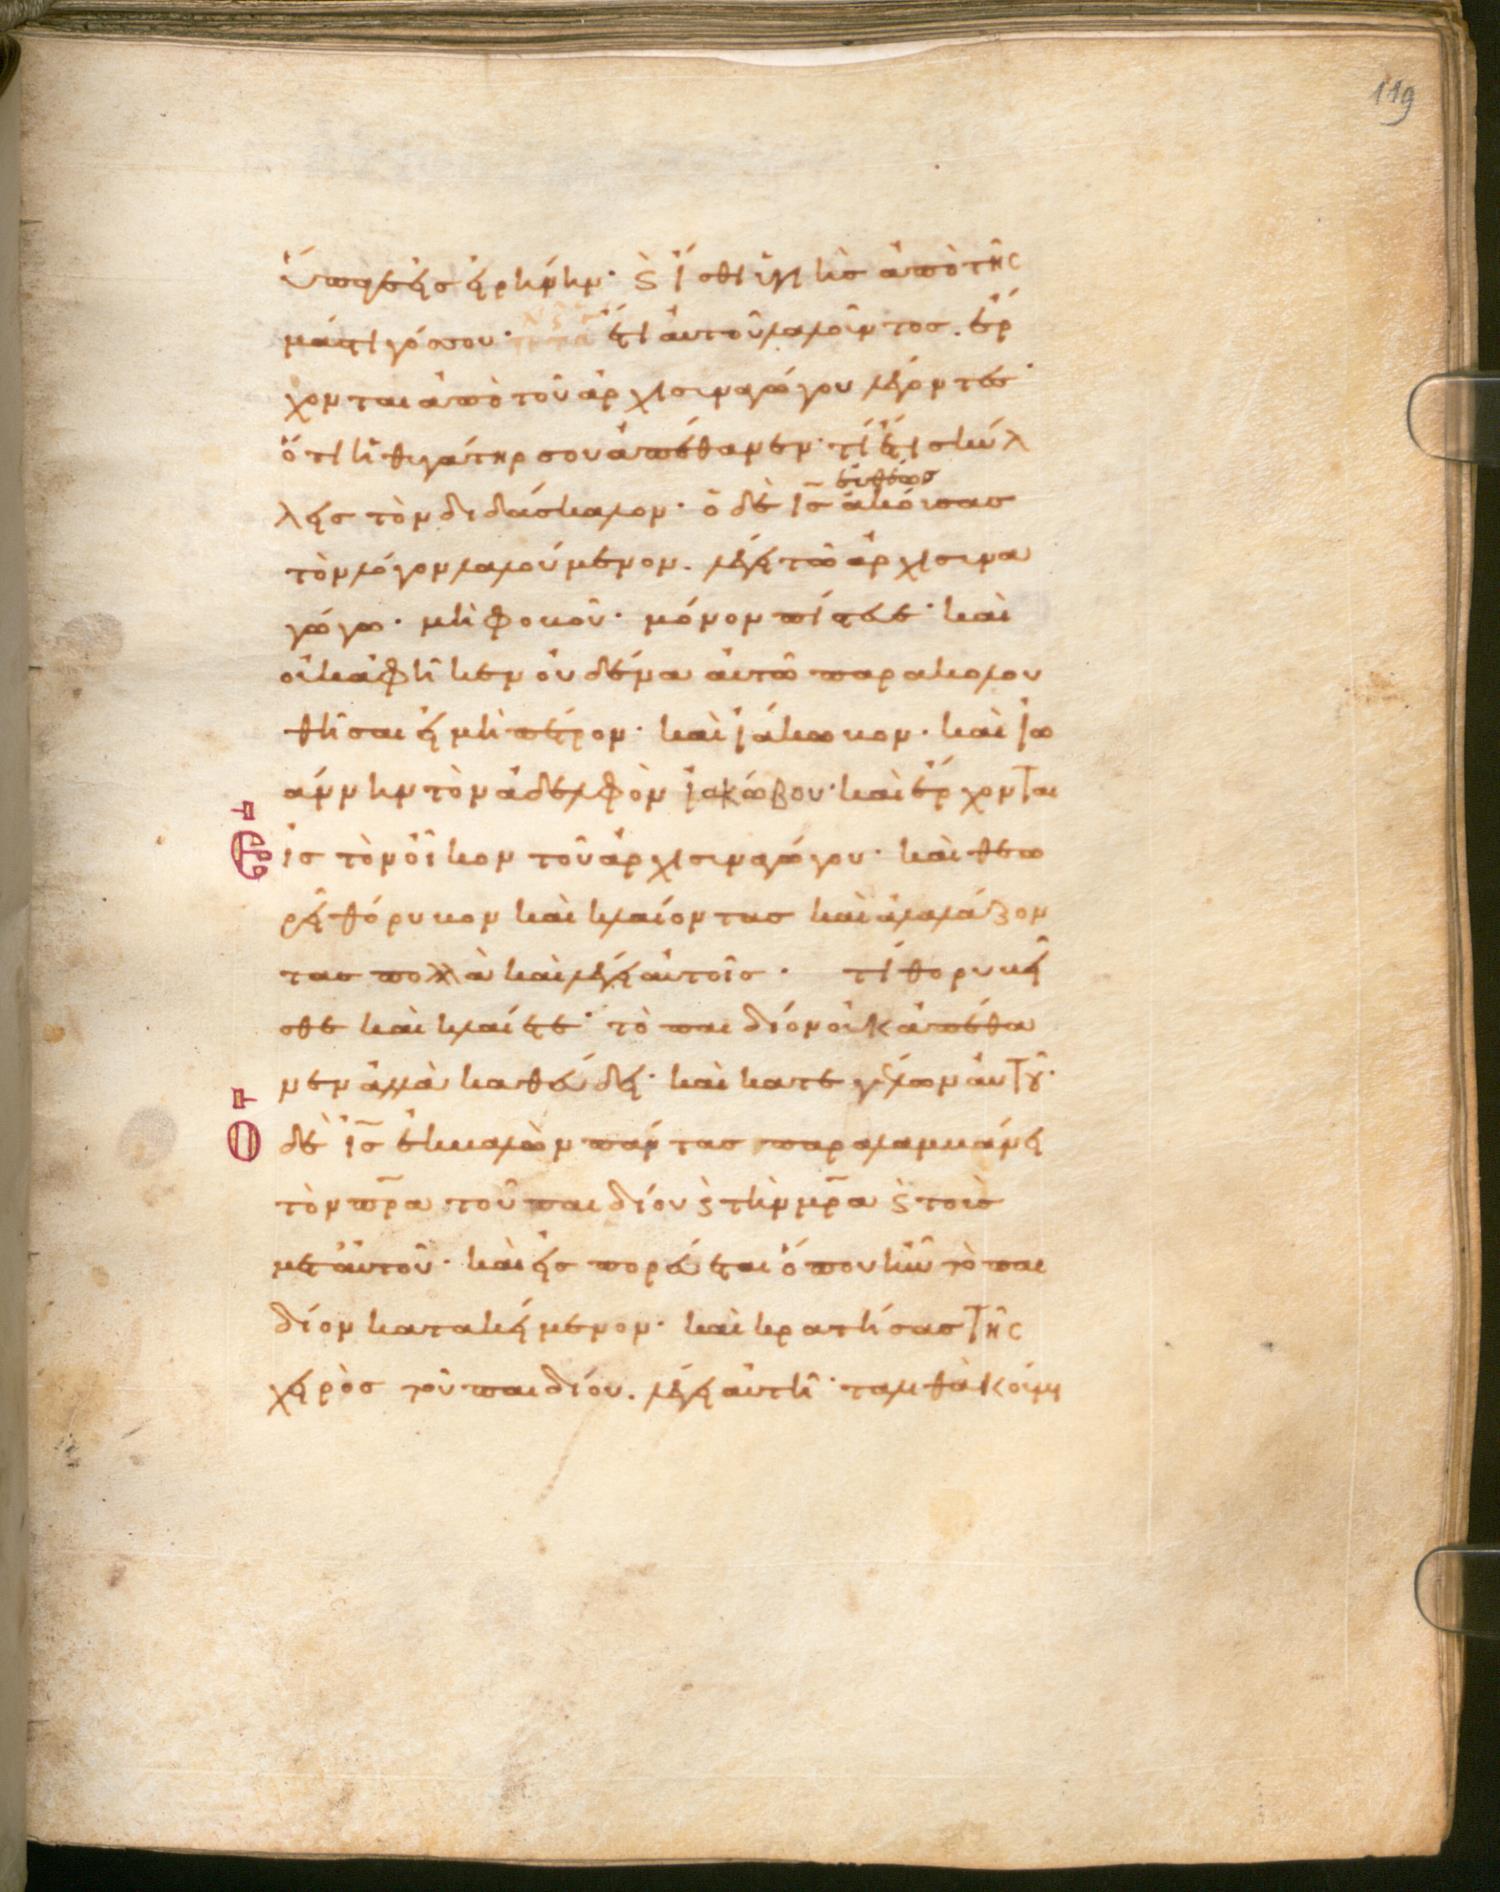 119
ὕπαγε εἰς εἰρήνην· ϛ̀ ἴσθι ὑγιὴς ἀπὸ τῆς
μάστιγός σου· ἔτι αὐτοῦ λαλοῦντος. ἔρ
χονται ἀπὸ τοῦ ἀρχισυναγώγου λέγοντες·
ὅτι ἡ θυγάτηρ σου ἀπέθανεν· τί ἔτι σκύλ
εὐθέως
λεις τὸν διδάσκαλον· ὁ δὲ ις̅ ἀκούσας
τὸν λόγον λαλούμενον. λέγει τῶ ἀρχισυνα
γώγω· μὴ φοβοῦ· μόνον πίστευε· καὶ
οὐκ ἀφῆκεν οὐδένα αὐτῶ παρακολου
θῆσαι εἰ μὴ πέτρον· καὶ ἰάκωβον· καὶ ἰω
άννην τὸν ἀδελφὸν ἰακώβου· καὶ ἔρχονται
Εἰς τὸν οἶκον τοῦ ἀρχισυναγώγου· καὶ θεω
ρεῖ θόρυβον καὶ κλαίοντας καὶ ἀλαλάζον
τας πολλὰ καὶ λέγει αὐτοῖς · τί θορυβεῖ
σθε καὶ κλαίετε· τὸ παιδίον οὐκ ἀπέθα
νεν ἀλλὰ καθεύδει· καὶ κατεγέλων αὐτοῦ·
Ὁ δὲ ις̅ ἐκβαλὼν πάντας παραλαμβάνει
τὸν πρ̅α τοῦ παιδίου ϛ̀ τὴν μρ̅α ϛ̀ τοὺς
μετ αὐτοῦ· καὶ εἰσπορεύεται ὅπου ἦν τὸ παι
δίον κατακείμενον· καὶ κρατήσας τῆς
χειρὸς τοῦ παιδίου. λέγει αὐτῆ· ταλιθὰ κούμι